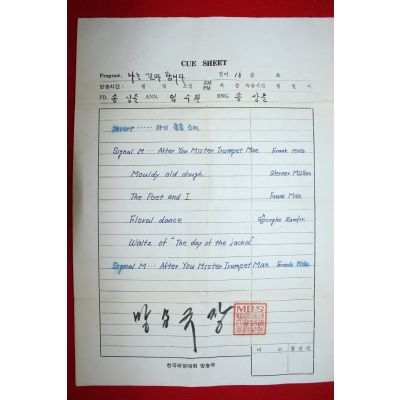 CUE SHEET
Program, 나는 긴다 합니다 길이 15 분 초
방송시간: 월 일 요일 AM PM 시 분 녹음시간 월 일 시
PD. 송 상훈 ANN. 임 수원 ENG. 송 상훈
Insert ..... 마신 물음 소리.
Signal M ... After You Mister Trumpet Man. Frank Mills.
Mouldy old dough. Werner Müller.
The Poet and I. Frank Mills.
Floral dance Georghe Zamfir.
Waltz of "The day of the jackal"
Signal M ... After You Mister Trumpet Man. Frank Mills.
방송국장
MBS
비고
한국해양대학 방송국